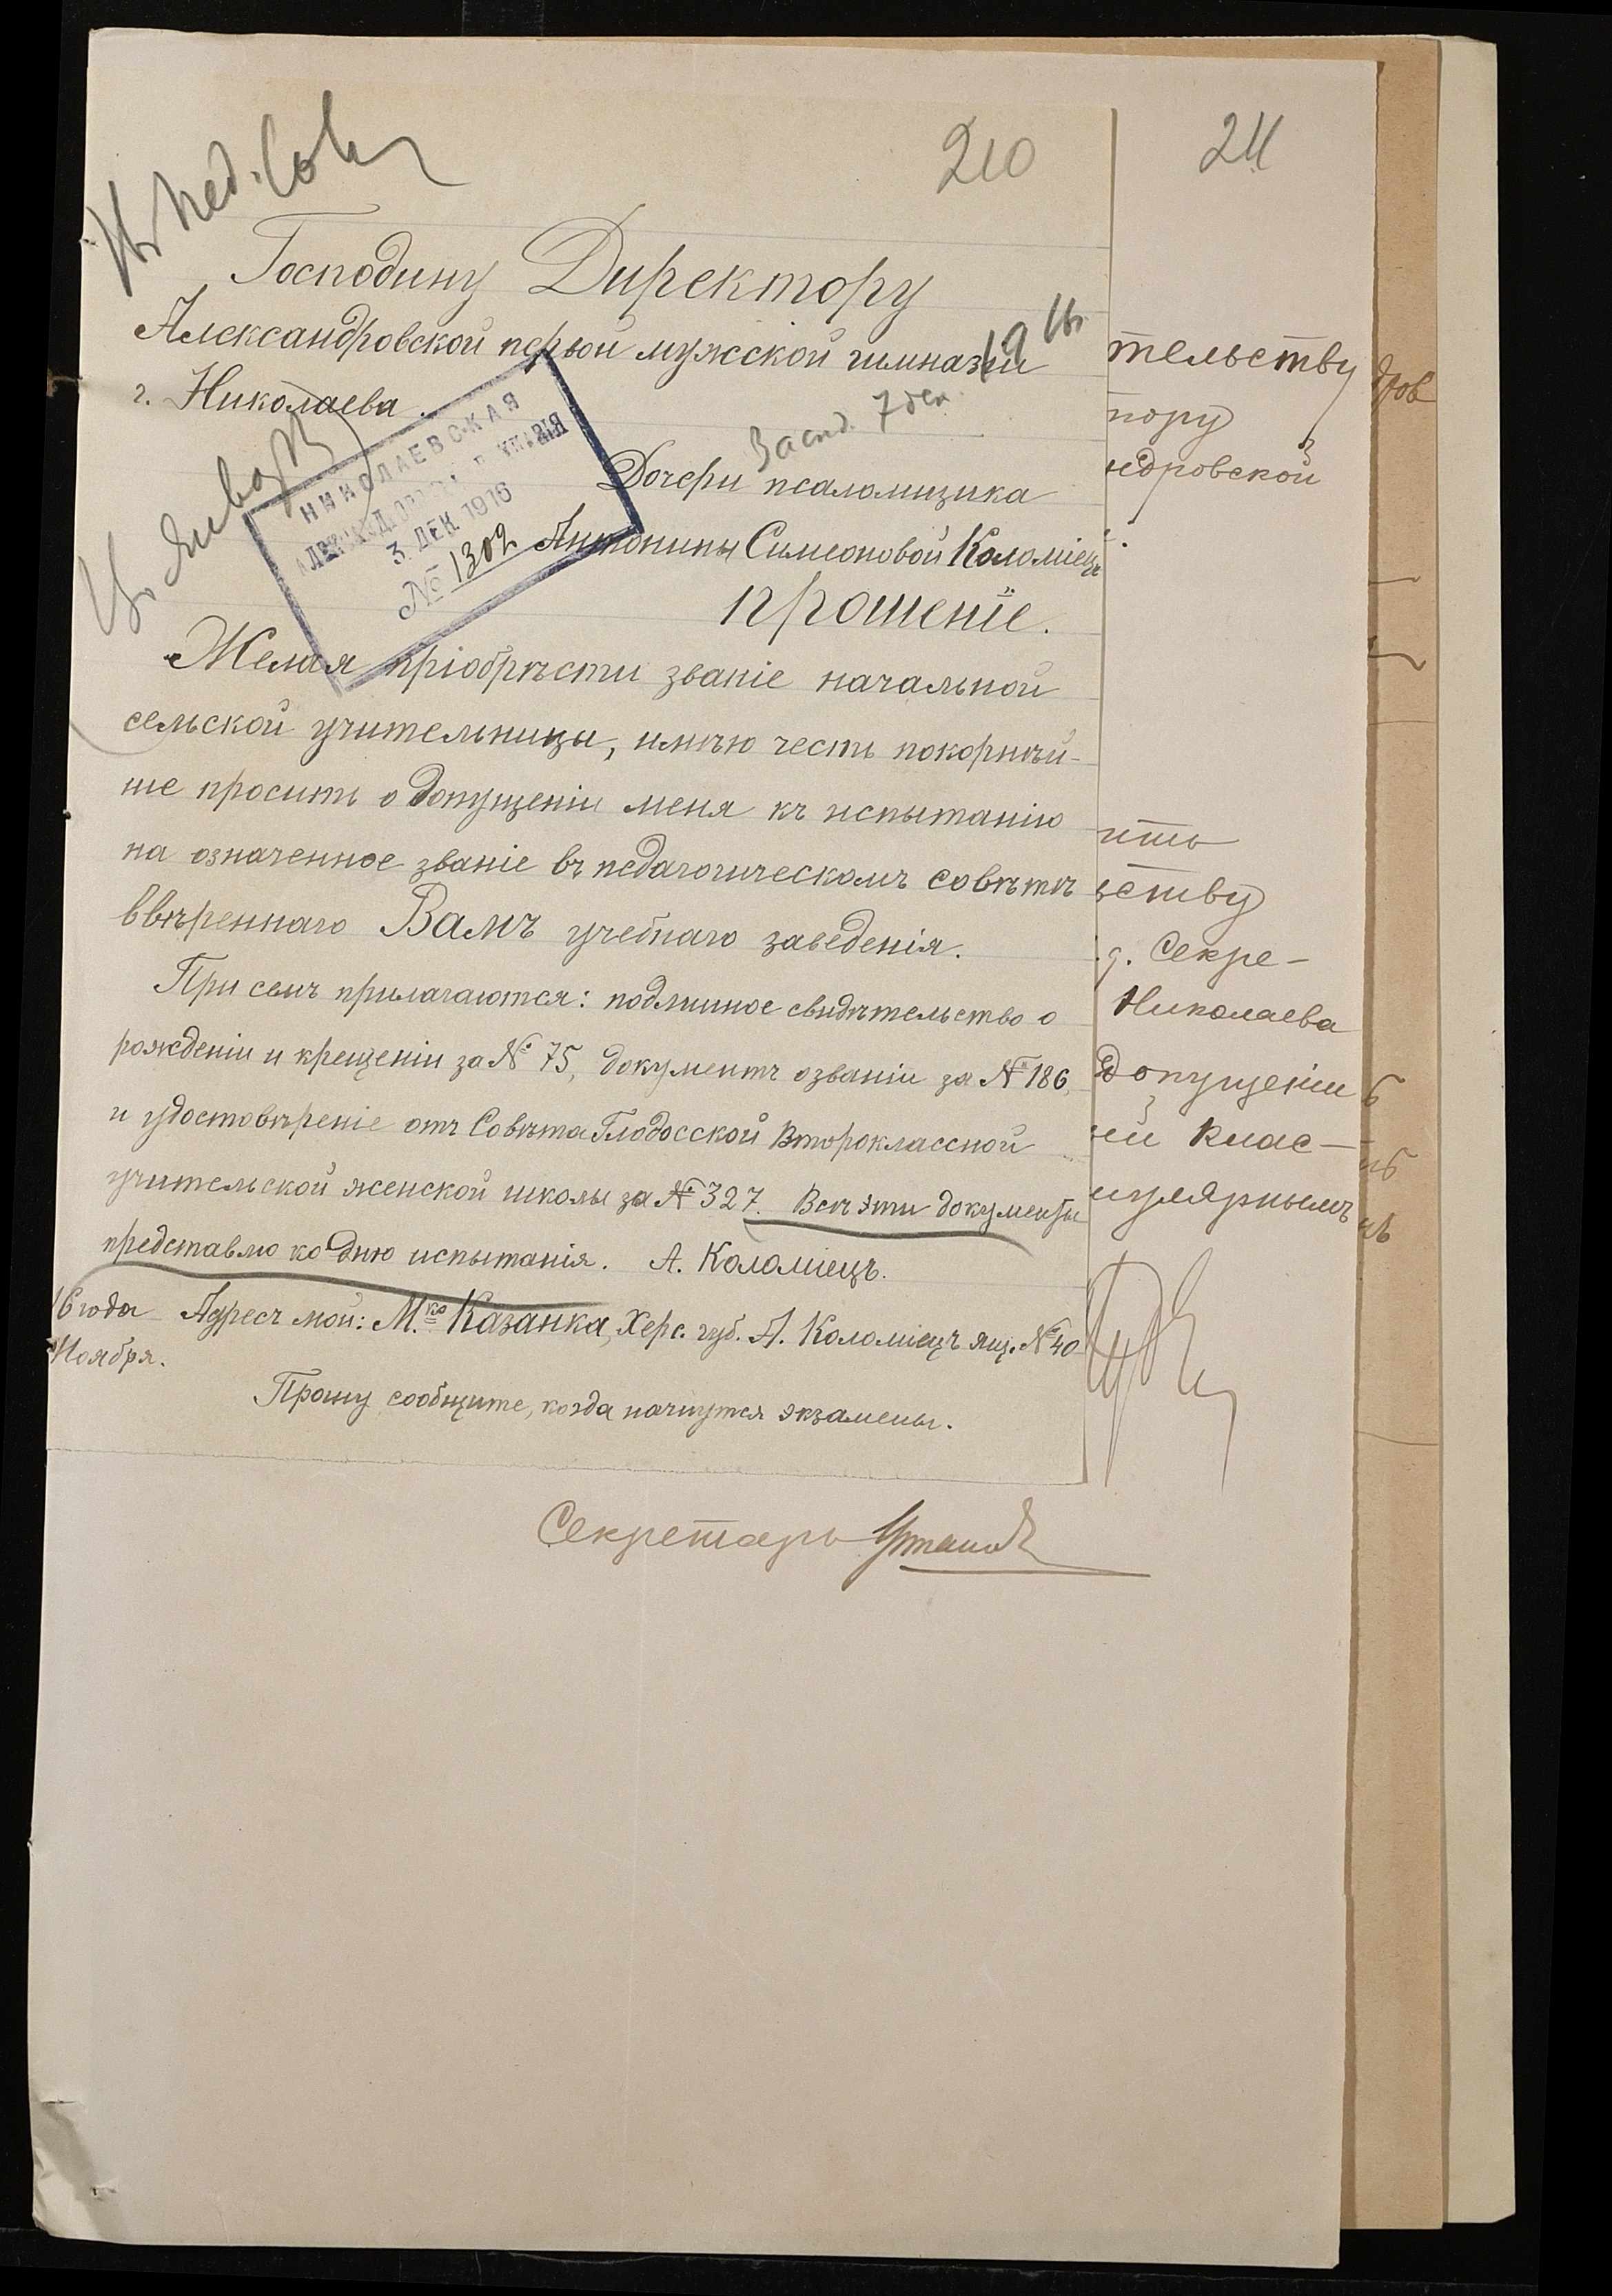 Въ Пед. Сов
210
211
Господину Директору
Александровской первой мужской гимназіи
г. Николаева.
Засѣд. 7 дек.
НИКОЛАЕВСКАЯ
3. ДЕК 1916
№ 1302
Дочери псаломщика
Антонины Симеоновой Коломіецъ
прошеніе.
Желая пріобрѣсти званіе начальной
сельской учительницы, имѣю честь покорнѣй-
ше просить о допущеніи меня къ испытанію
на означенное званіе въ педагогическомъ совѣтѣ
ввѣреннаго Вамъ учебнаго заведенія.
При семъ прилагаются: подлинное свидѣтельство о
рожденіи и крещеніи за № 75, документъ о званіи за № 186,
и удостовѣреніе отъ Совѣта Глодосской Второклассной
учительской женской школы за № 327. Всѣ эти документы
представлю ко дню испытанія. А. Коломіецъ.
16 года Адресъ мой: М.ко Казанка, Херс. губ. А. Коломіецъ ящ. № 40
Ноября.
Прошу сообщите, когда начнутся экзамены.
Секретарь
тельству
тору
ндровской
ить
ьству
д. Секре-
Николаева
допущеніи
ій клас-
иулярнымъ
дров